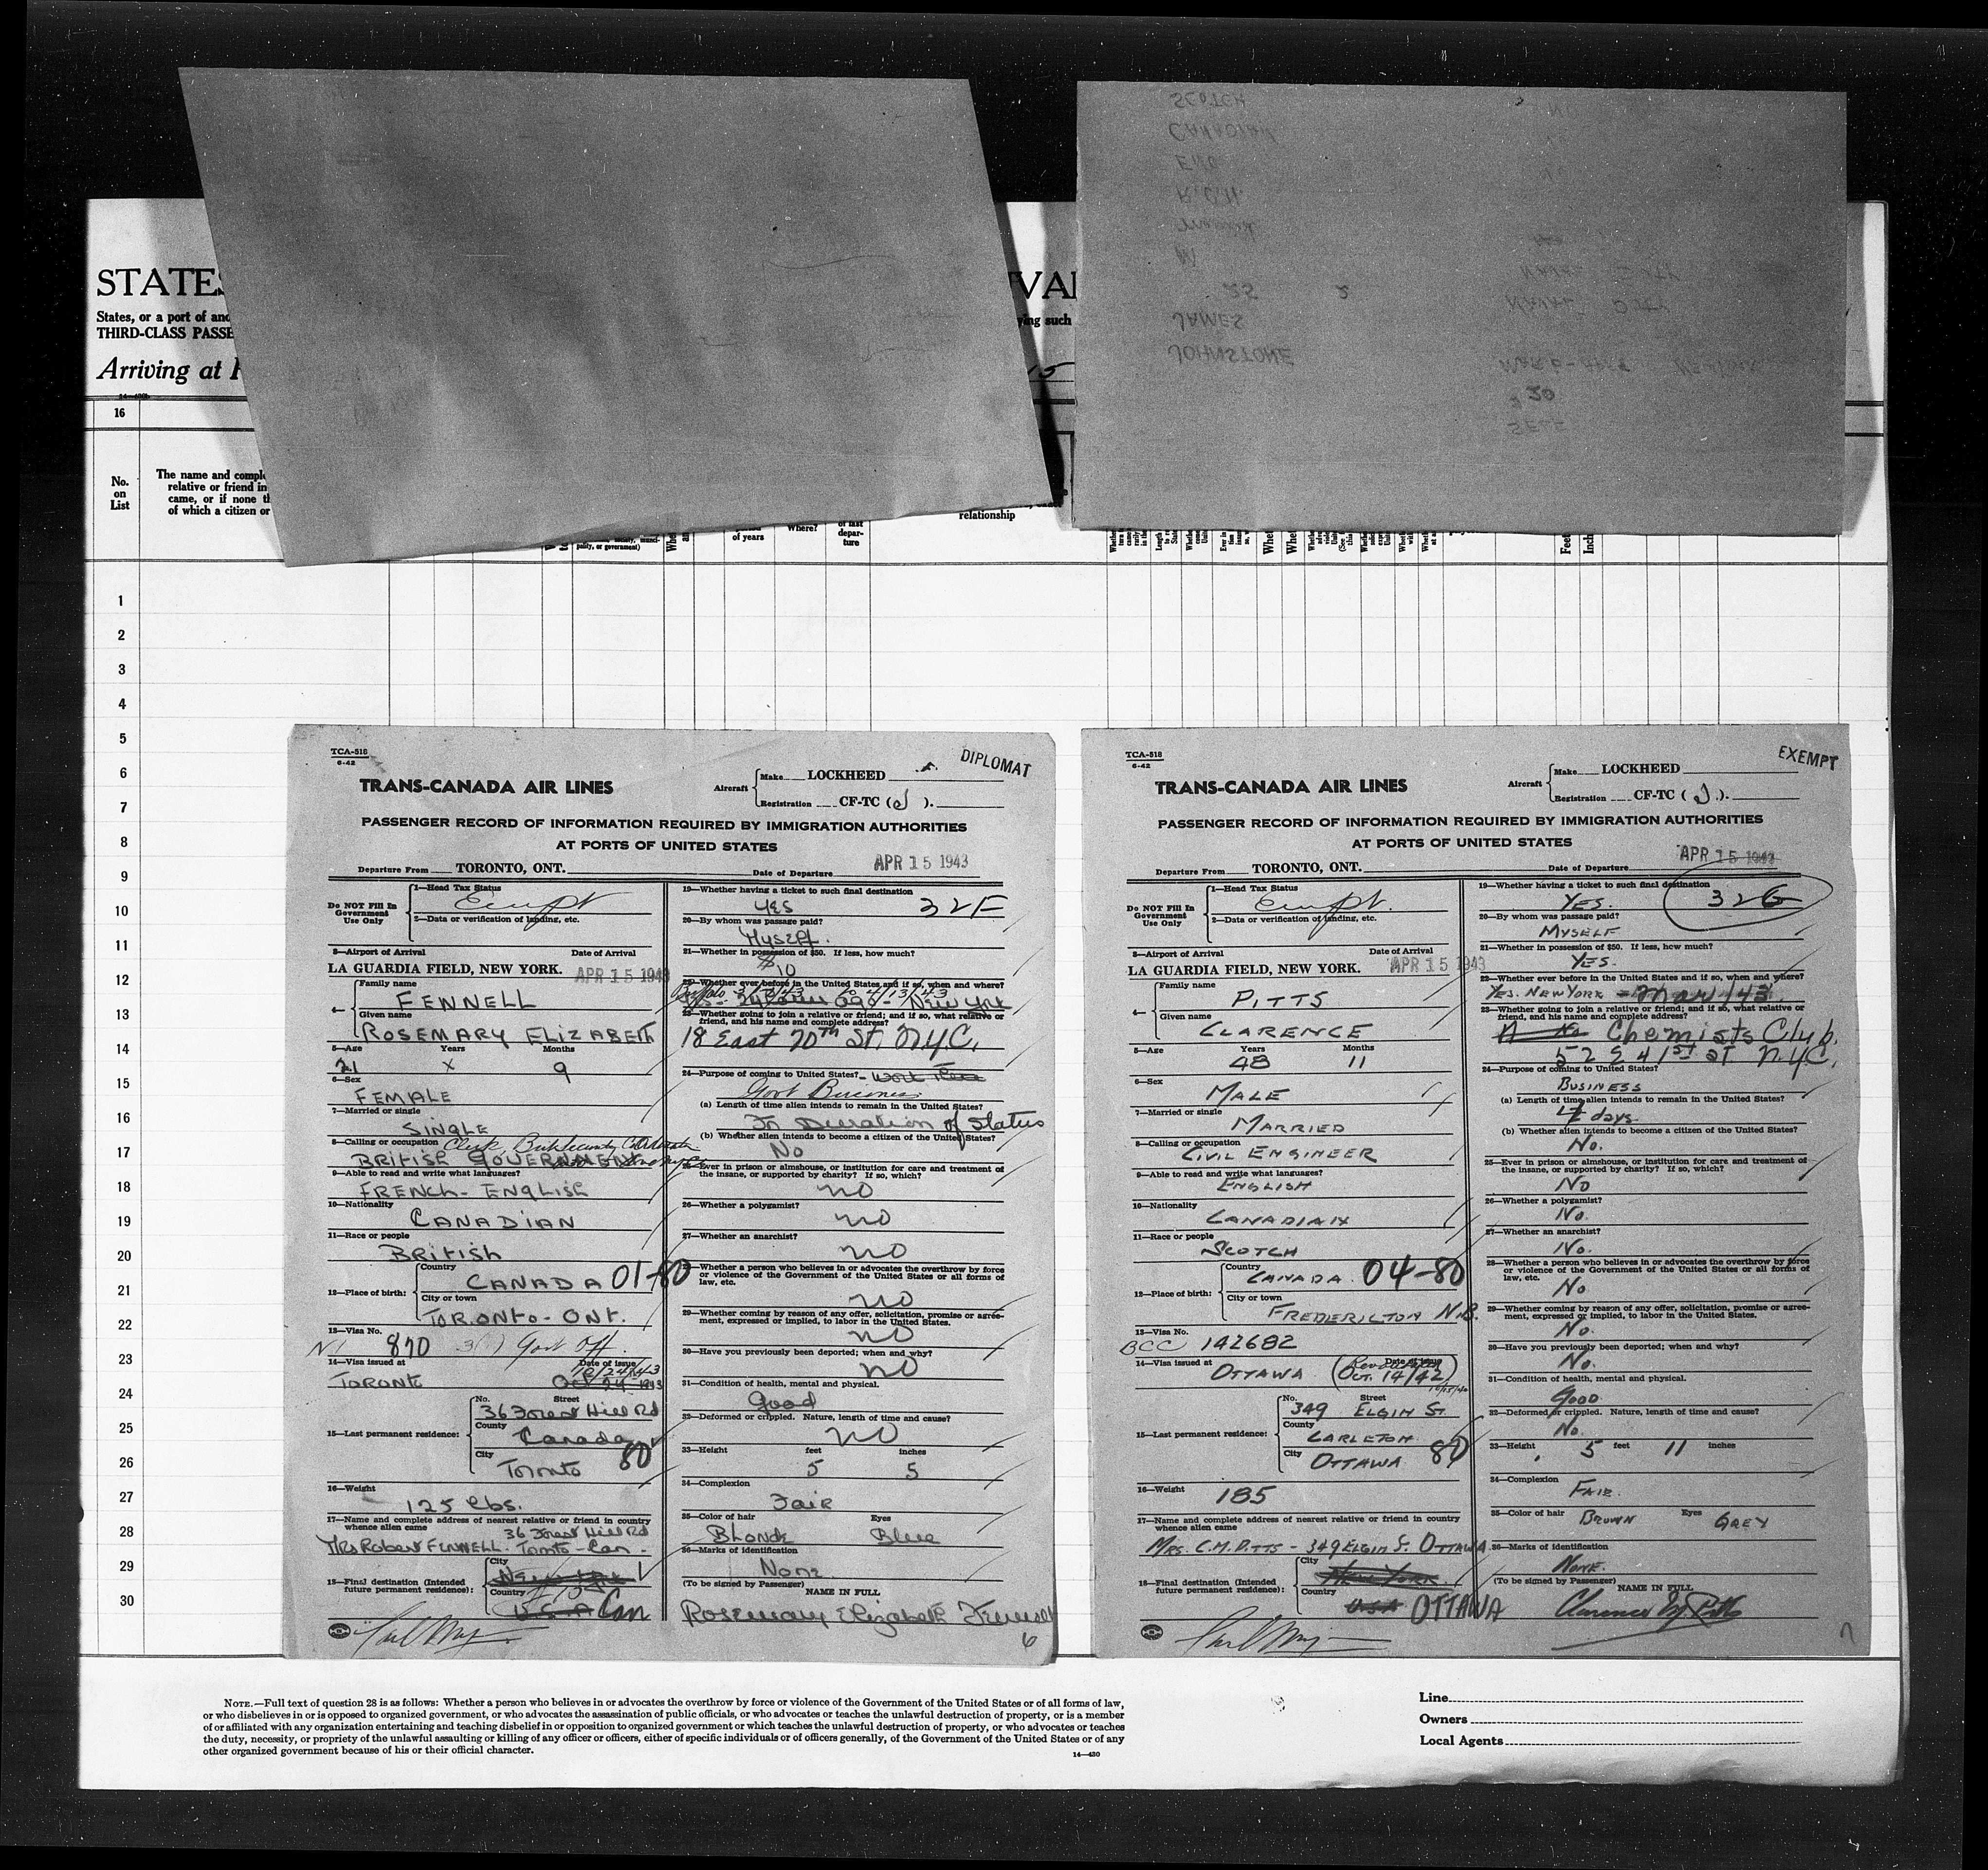 STATES
States, or a port of
THIRD-CLASS
Arriving at
16
No.
on
List
The name and
relative or friend in
came, or if none
of which a citizen or
of years
Where?
of last
depar-
ture
relationship
Feet
1
2
3
4
5
6
7
8
9
10
11
12
13
14
15
16
17
18
19
20
21
22
23
24
25
26
27
28
29
30
JOHNSTONE
JAMES
25
M
R.C.N.
Eng
Canadian
SCOTCH
SELF
20
Naval Duty
TCA-518
6-42
DIPLOMAT
TRANS-CANADA AIR LINES
Aircraft
Make LOCKHEED
Registration CF-TC (J).
PASSENGER RECORD OF INFORMATION REQUIRED BY IMMIGRATION AUTHORITIES
AT PORTS OF UNITED STATES
Departure From TORONTO, ONT. Date of Departure APR 15 1943
Do NOT Fill In
Government
Use Only
1—Head Tax Status
Exempt
2—Data or verification of landing, etc.
3—Airport of Arrival Date of Arrival
LA GUARDIA FIELD, NEW YORK. APR 15 1943
4—
Family name
FENNELL
Given name
ROSEMARY ELIZABETH
5—Age Years Months
21 X 9
6—Sex
FEMALE
7—Married or single
SINGLE
8—Calling or occupation Clerk, Brit Security
BRITISH GOVERNMENT
9—Able to read and write what languages?
FRENCH - ENGLISH
10—Nationality
CANADIAN
11—Race or people
BRITISH
12—Place of birth:
Country
CANADA 01-80
City or town
TORONTO - ONT.
13—Visa No.
870 3(1) Govt Off.
14—Visa issued at Date of issue
TORONTO
15—Last permanent residence:
No. Street
36 Forest Hill Rd
County
Canada
City
Toronto 80
16—Weight
125 lbs.
17—Name and complete address of nearest relative or friend in country
whence alien came 36 Forest Hill Rd
Mrs Robert FENNELL - Toronto - Can -
18—Final destination (Intended
future permanent residence):
City
New York
Country
U.S.A Can
19—Whether having a ticket to such final destination
YES 32F
20—By whom was passage paid?
Myself.
21—Whether in possession of $50. If less, how much?
$10
22—Whether ever before in the United States and if so, when and where?
New York
23—Whether going to join a relative or friend; and if so, what relative or
friend, and his name and complete address?
18 East 70th St. N.Y.C.
24—Purpose of coming to United States?
Govt Business
(a) Length of time alien intends to remain in the United States?
Duration of Status
(b) Whether alien intends to become a citizen of the United States?
No
25—Ever in prison or almshouse, or institution for care and treatment of
the insane, or supported by charity? If so, which?
no
26—Whether a polygamist?
no
27—Whether an anarchist?
no
28—Whether a person who believes in or advocates the overthrow by force
or violence of the Government of the United States or all forms of
law, etc.
no
29—Whether coming by reason of any offer, solicitation, promise or agree-
ment, expressed or implied, to labor in the United States.
no
30—Have you previously been deported; when and why?
no
31—Condition of health, mental and physical.
Good
32—Deformed or crippled. Nature, length of time and cause?
no
33—Height feet inches
5 5
34—Complexion
Fair
35—Color of hair Eyes
Blonde Blue
36—Marks of identification
None.
(To be signed by Passenger) NAME IN FULL
Rosemary Elizabeth Fennell
6
TCA-518
6-42
EXEMPT
TRANS-CANADA AIR LINES
Aircraft
Make LOCKHEED
Registration CF-TC (J).
PASSENGER RECORD OF INFORMATION REQUIRED BY IMMIGRATION AUTHORITIES
AT PORTS OF UNITED STATES
Departure From TORONTO, ONT. Date of Departure APR 15 1943
Do NOT Fill In
Government
Use Only
1—Head Tax Status
Exempt.
2—Data or verification of landing, etc.
3—Airport of Arrival Date of Arrival
LA GUARDIA FIELD, NEW YORK. APR 15 1943
4—
Family name
PITTS
Given name
CLARENCE
5—Age Years Months
48 11
6—Sex
MALE
7—Married or single
MARRIED
8—Calling or occupation
CIVIL ENGINEER
9—Able to read and write what languages?
ENGLISH
10—Nationality
CANADIAN
11—Race or people
SCOTCH
12—Place of birth:
Country
CANADA. 04-80
City or town
FREDERICTON N.B.
13—Visa No.
BCC 142682
14—Visa issued at Date of issue
OTTAWA OCT. 14/42
15—Last permanent residence:
No. Street
349 ELGIN ST.
County
CARLETON
City
OTTAWA 80
16—Weight
185
17—Name and complete address of nearest relative or friend in country
whence alien came
MRS. C.M. PITTS - 349 ELGIN S. OTTAWA
18—Final destination (Intended
future permanent residence):
City
New York.
Country
USA OTTAWA
19—Whether having a ticket to such final destination
YES. 32G
20—By whom was passage paid?
MYSELF
21—Whether in possession of $50. If less, how much?
YES.
22—Whether ever before in the United States and if so, when and where?
YES. NEW YORK - Mar/43
23—Whether going to join a relative or friend; and if so, what relative or
friend, and his name and complete address?
Chemists Club.
52 E 41st St N.Y.C.
24—Purpose of coming to United States?
BUSINESS
(a) Length of time alien intends to remain in the United States?
4 days.
(b) Whether alien intends to become a citizen of the United States?
No.
25—Ever in prison or almshouse, or institution for care and treatment of
the insane, or supported by charity? If so, which?
No
26—Whether a polygamist?
No.
27—Whether an anarchist?
No.
28—Whether a person who believes in or advocates the overthrow by force
or violence of the Government of the United States or all forms of
law, etc.
No
29—Whether coming by reason of any offer, solicitation, promise or agree-
ment, expressed or implied, to labor in the United States.
No.
30—Have you previously been deported; when and why?
No.
31—Condition of health, mental and physical.
Good
32—Deformed or crippled. Nature, length of time and cause?
No.
33—Height 5 feet 11 inches
34—Complexion
FAIR.
35—Color of hair BROWN Eyes GREY
36—Marks of identification
NONE.
(To be signed by Passenger) NAME IN FULL
Clarence M Pitts
7
NOTE.—Full text of question 28 is as follows: Whether a person who believes in or advocates the overthrow by force or violence of the Government of the United States or of all forms of law,
or who disbelieves in or is opposed to organized government, or who advocates the assassination of public officials, or who advocates or teaches the unlawful destruction of property, or is a member
of or affiliated with any organization entertaining and teaching disbelief in or opposition to organized government or which teaches the unlawful destruction of property, or who advocates or teaches
the duty, necessity, or propriety of the unlawful assaulting or killing of any officer or officers, either of specific individuals or of officers generally, of the Government of the United States or of any
other organized government because of his or their official character.
14—430
Line
Owners
Local Agents